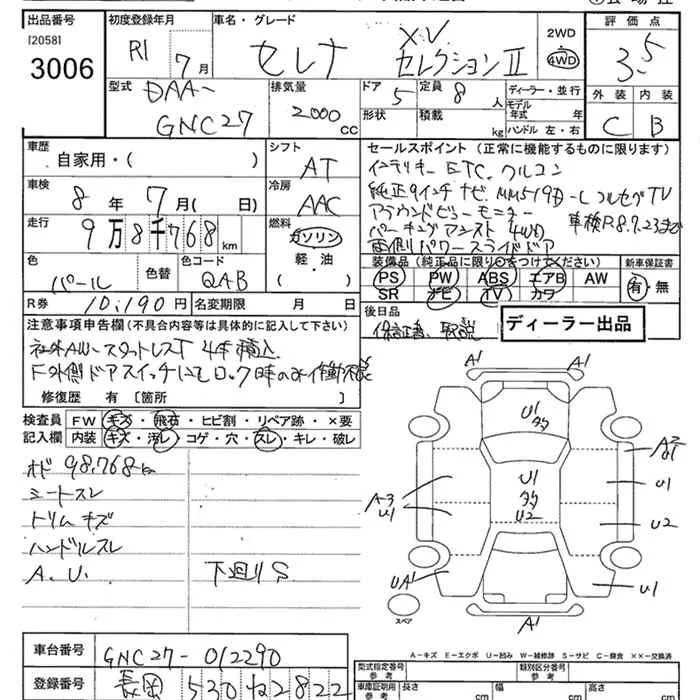 出品番号 初度登録年月 車名・グレード 2WD 評価点
[2058]
3006 R1 7月 セレナ XV セレクションⅡ 4WD 3.5
型式 排気量 ドア 定員 ディーラー・並行 外装 内装
DAA- 2000cc 5 8人 モデル年式 年式
GNC27 形状 積載 kg ハンドル 左・右 C B
車歴 シフト セールスポイント(正常に機能するものに限ります)
自家用・( ) AT インテリキー ETC クルコン
車検 冷房 純正9インチナビ MM519D-L フルセグTV
8年7月( 日) AAC アラウンドビューモニター
走行 燃料 パーキングアシスト 4WD 車検R8.7.23まで
9万8千768km ガソリン 両側パワースライドドア
色 色替 色コード 軽・油 装備品(純正品に限り○をつけてください) 新車保証書
パール QAB ( ) PS PW ABS エアB AW 有・無
SR ナビ TV カワ
R券 10,190円 名変期限 月 日 後日品
注意事項申告欄(不具合内容等は具体的に記入して下さい) 保証書、取説 ディーラー出品
社外AW-スタットレスT 4本積込
F外側ドアスイッチにてロック時のみ作動不能
修復歴 有 [箇所 ]
検査員 FW キズ・飛石・ヒビ割・リペア跡・×要
記入欄 内装 キズ・汚レ・コゲ・穴・スレ・キレ・破レ
オド 98,768km
シートスレ
トリムキズ
ハンドルスレ
A.U. 下廻りS
A1 A1
U1 多
A2
U1 多 U1
A3 U1 U2 U2
UA1 U1
スペア A1
A-キズ E-エクボ U-凹み W-補修跡 S-サビ C-腐食 XX-交換済
車台番号 GNC27-012290
型式指定番号 参考 類別区分番号 参考
登録番号 長岡 530 ね 2822
車庫証明用 参考 長さ cm 幅 cm 高さ cm